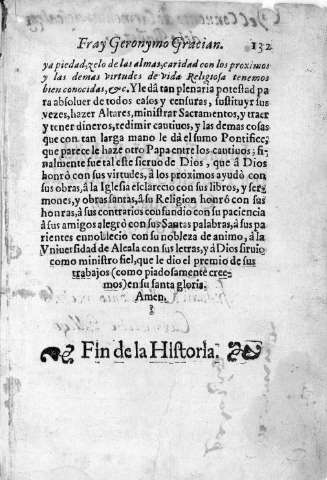 Fray Geronymo Gracian. 132
ya piedad, zelo de las almas, caridad con los proximos
y las demas virtudes de vida Religiosa tenemos
bien conocidas, &c. Y le dã tan plenaria potestad pa
ra absoluer de todos casos y censuras, sustituyr sus
vezes, hazer Altares, ministrar Sacramentos, y traer
y tener dineros, redimir cautiuos, y las demas cosas
que con tan larga mano le dâ el sumo Pontifice;
que parece le haze otro Papa entre los cautiuos: fi-
nalmente fue tal este sieruo de Dios, que â Dios
honrò con sus virtudes, â los proximos ayudò con
sus obras, â la Iglesia esclarecio con sus libros, y ser
mones, y obras santas, â su Religion honrô con sus
honras, à sus contrarios confundio con su paciencia
à sus amigos alegrò con sus Santas palabras, â sus pa
rientes ennoblecio con su nobleza de animo, â la
Vniuersidad de Alcala con sus letras, y â Dios siruio
como ministro fiel, que le dio el premio de sus
trabajos (como piadosamente cree-
mos) en su santa gloria.
Amen.
Fin de la Historia.